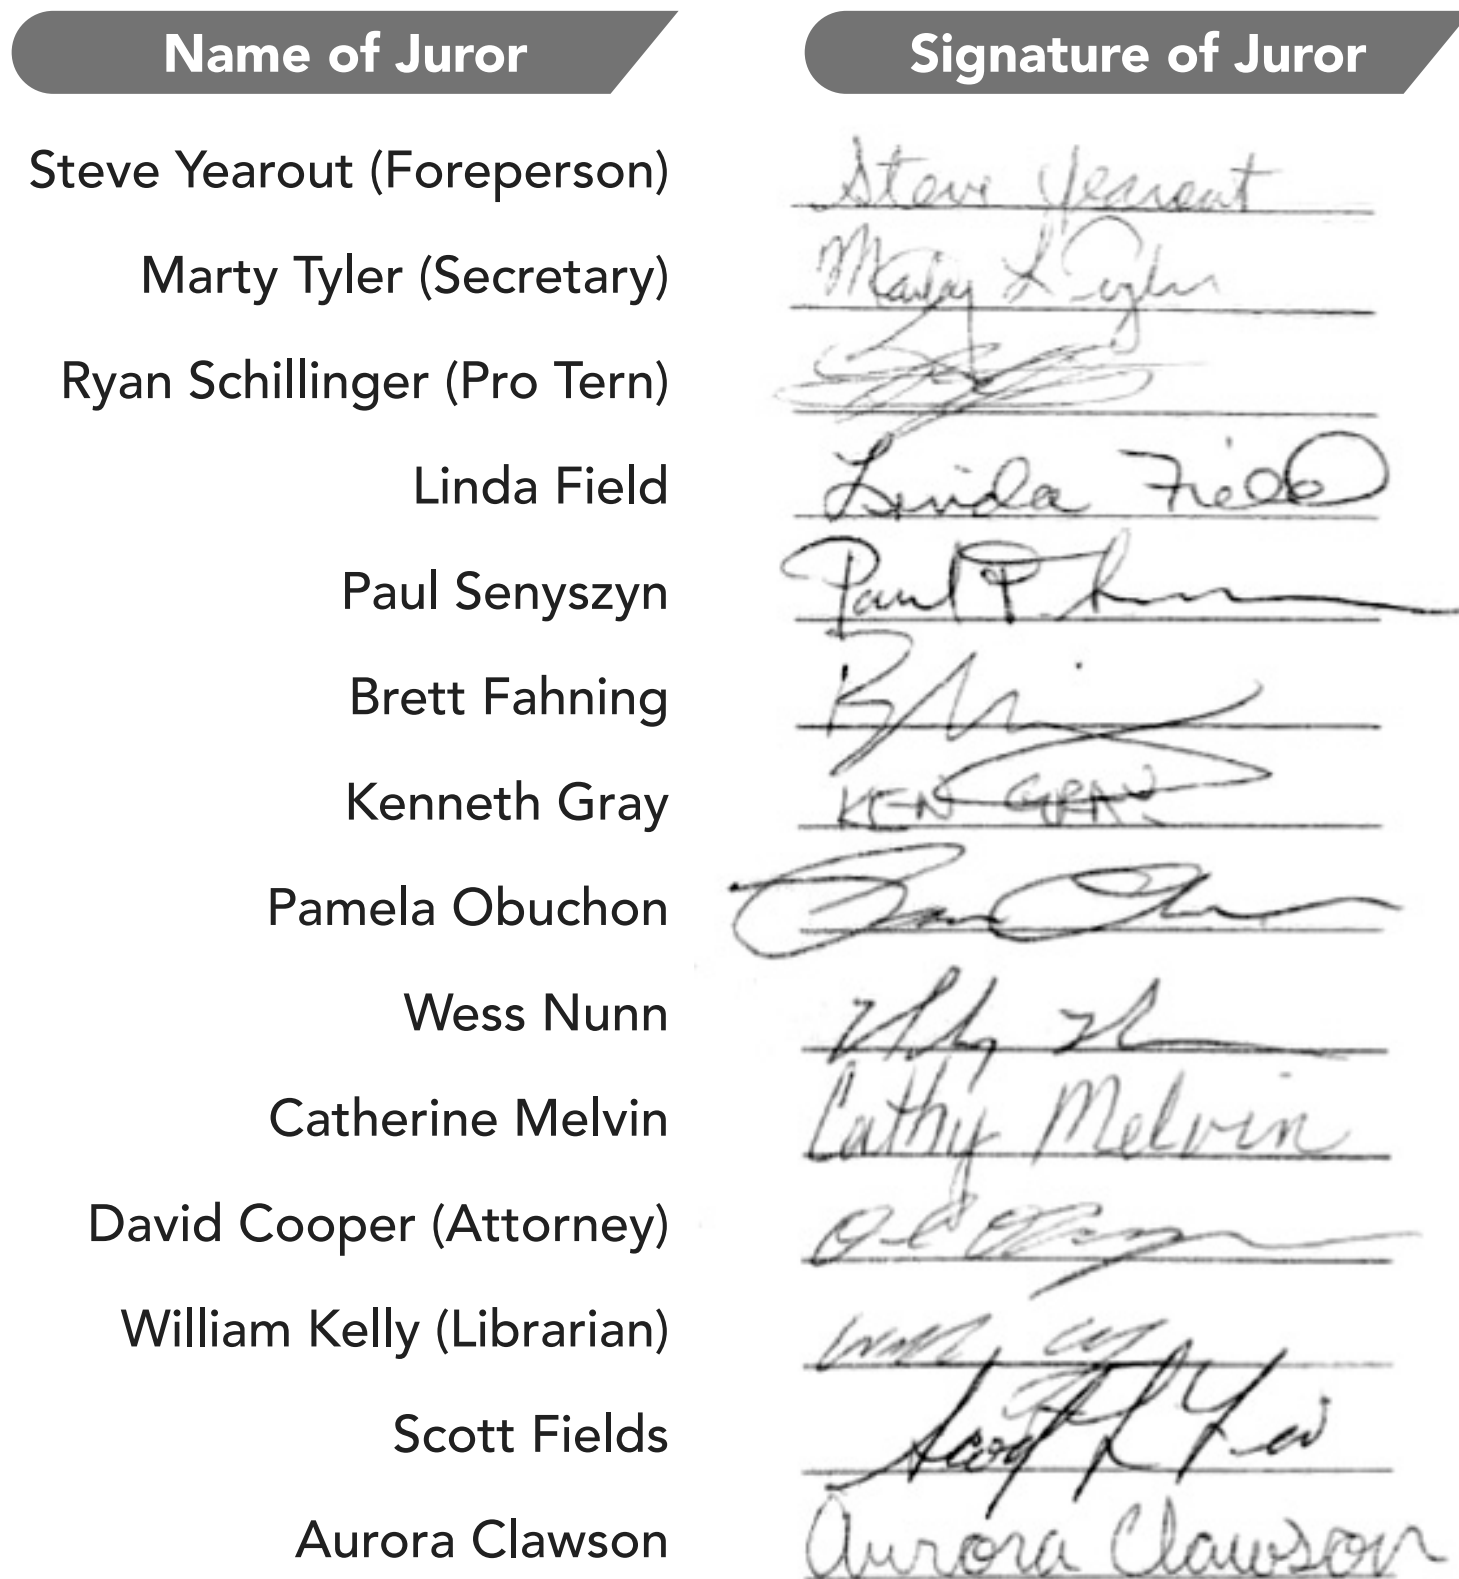 Name of Juror Signature of Juror
Steve Yearout (Foreperson) Steve Yearout
Marty Tyler (Secretary) Marty L Tyler
Ryan Schillinger (Pro Tern)
Linda Field Linda Field
Paul Senyszyn Paul P.
Brett Fahning
Kenneth Gray KEN GRAY
Pamela Obuchon
Wess Nunn
Catherine Melvin Cathy Melvin
David Cooper (Attorney)
William Kelly (Librarian)
Scott Fields Scott
Aurora Clawson Aurora Clawson